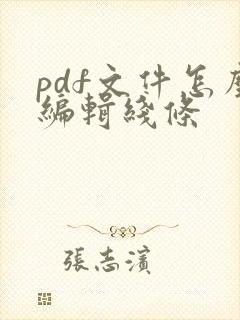 pdf文件怎麼
編輯綫條
張志濱